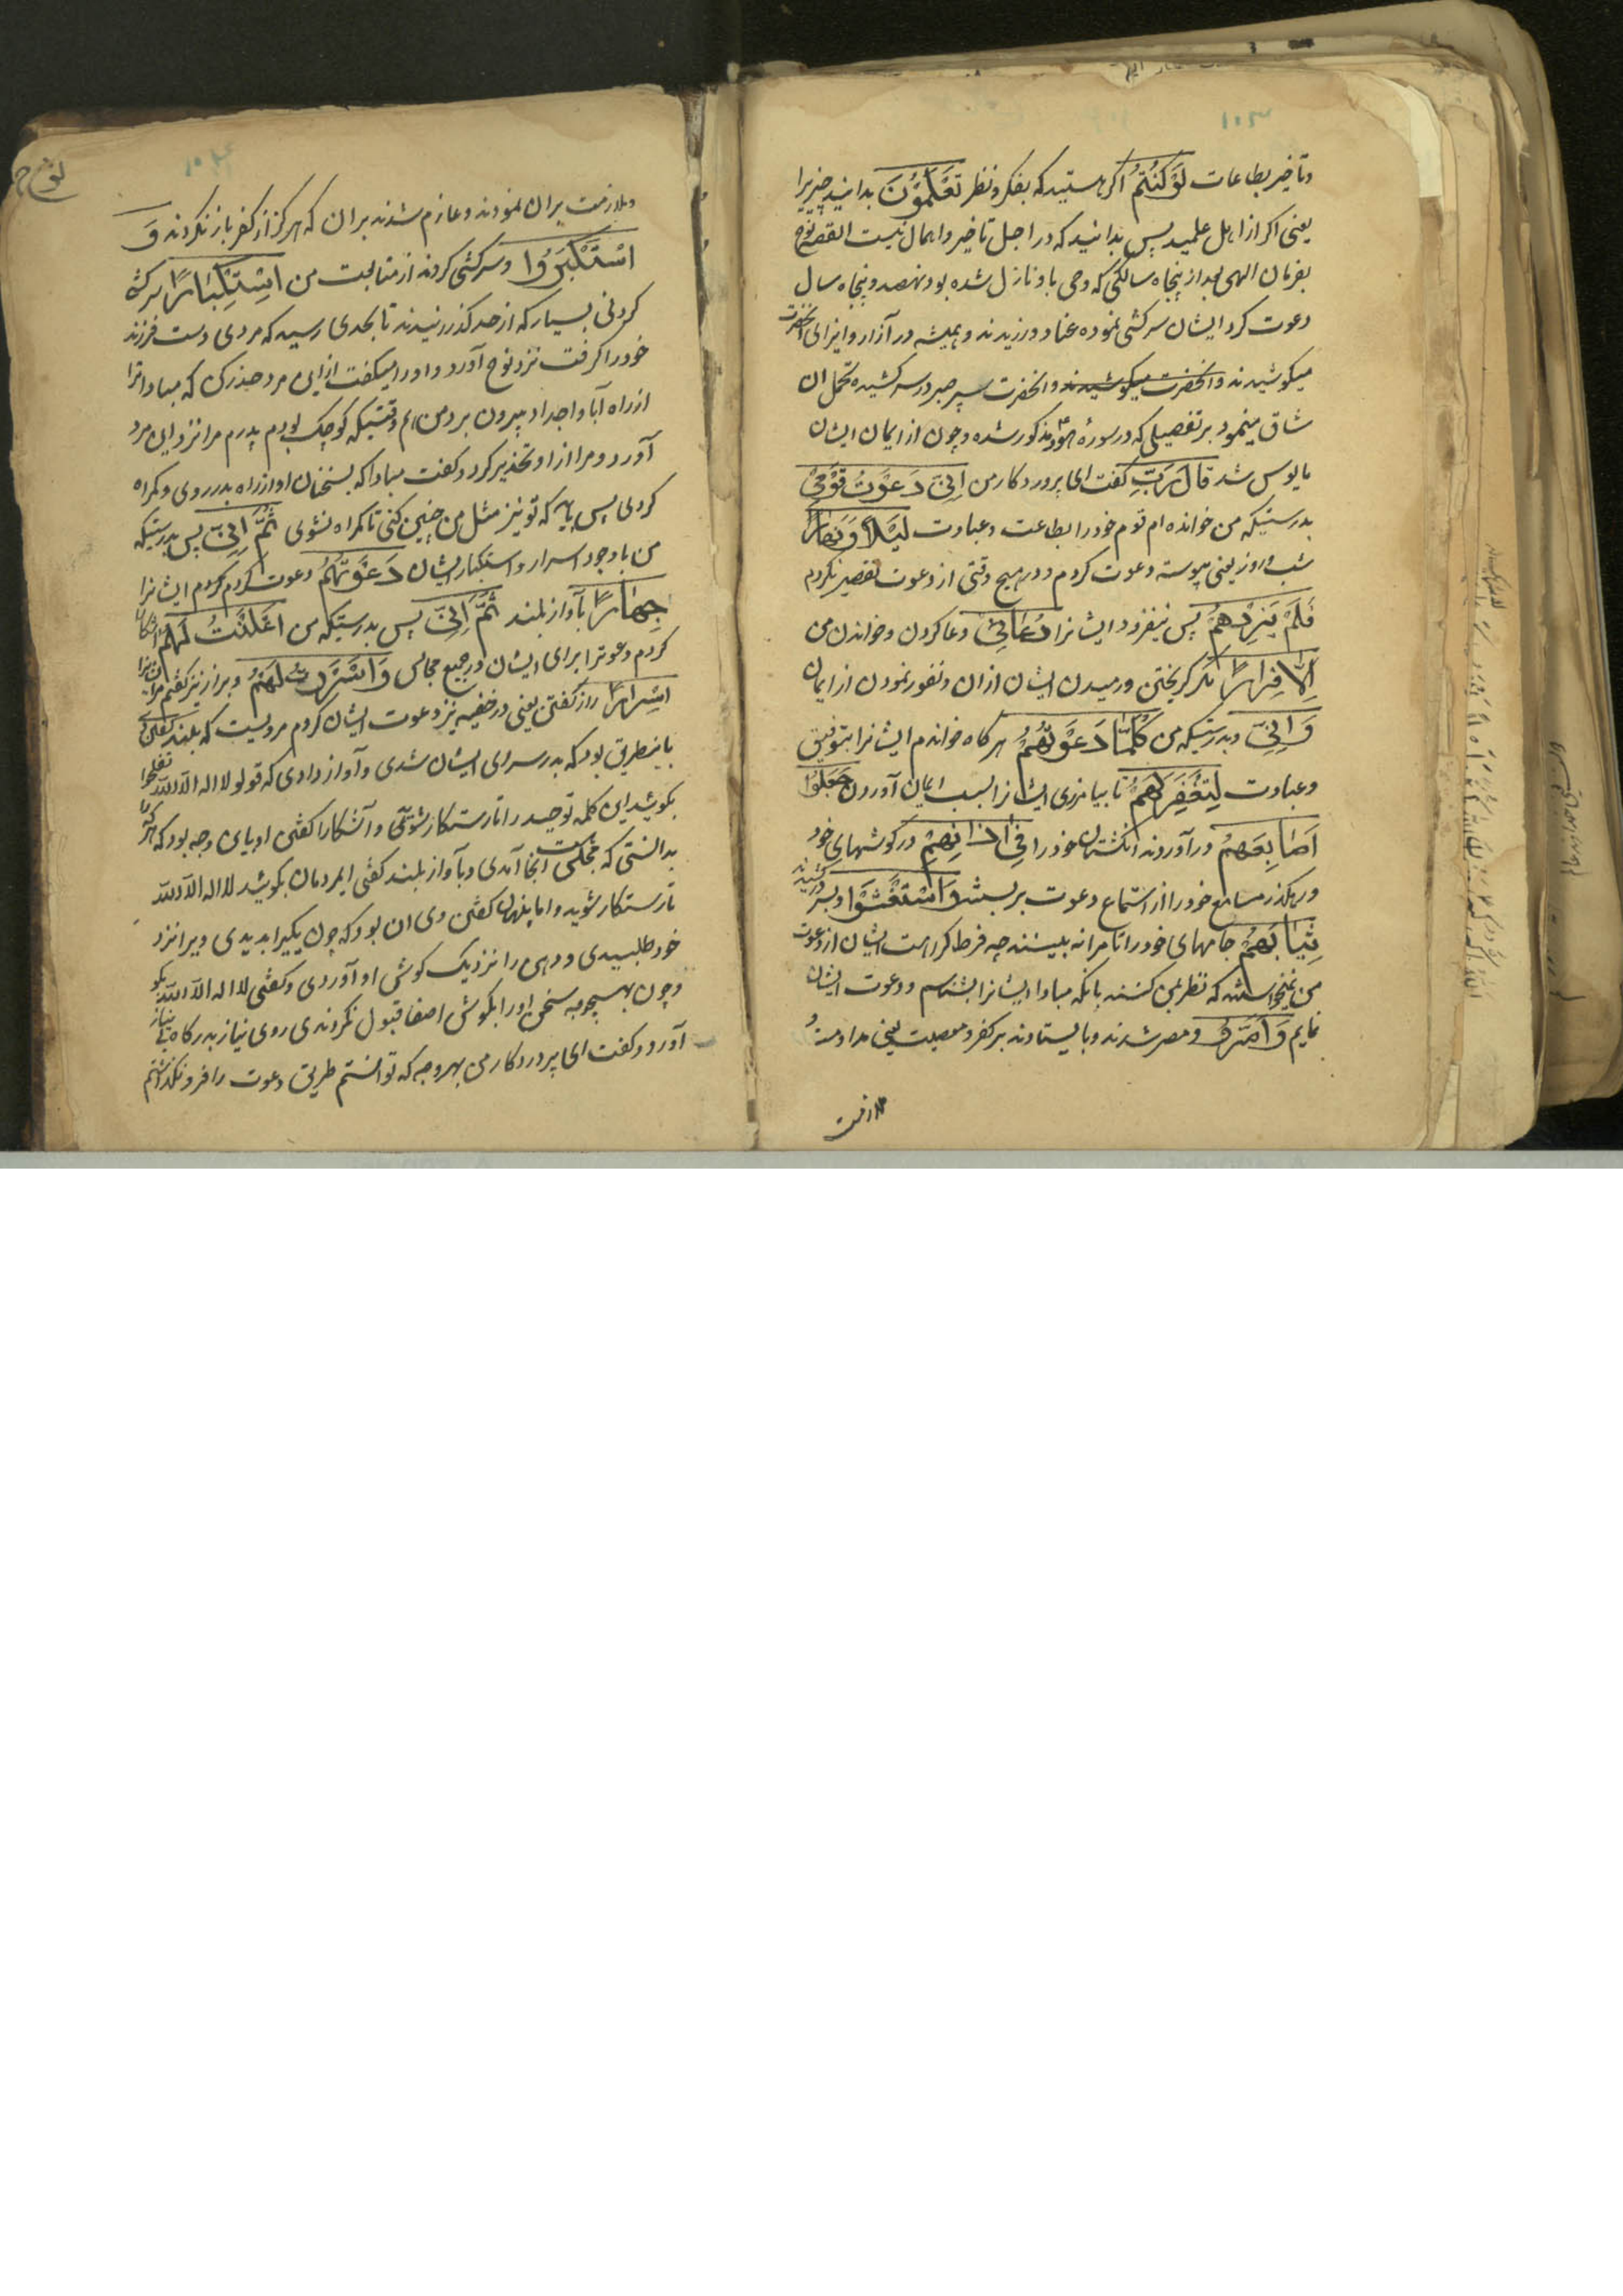 ۱۰۳
وتأخیر بطاعات لَوْ كُنْتُمْ اکر هستید که بفکر ونظر تَعْلَمُوْنَ بدانید چیزیرا
یعنی اکر از اهل علمید پس بدانید که در اجل تاخیر واهمال نیست القصه نوح
بفرمان الهی بعد از پنجاه سالکی که وحی باو نازل شده بود نهصد وپنجاه سال
دعوت کرد ایشان سرکشی نموده عناد ورزیدند وهمیشه در آزار وایزای آنحضرت
میکوشیدند وانحضرت میکوشیدند وانحضرت سپر صبر در سر کشیده تحمل ان
شاق مینمود بر تفصیلی که در سورۀ هود مذکور شده وچون از ایمان ایشان
مایوس شد قالَ رَبِّ کفت ای پروردکار من اِنِّی دَعَوْتُ قَوْمِیْ
بدرستیکه من خوانده ام قوم خود را بطاعت وعبادت لَیْلًا وَنَهَارًا
شب وروز یعنی پیوسته دعوت کردم ودر هیچ وقتی از دعوت تقصیر نکردم
فَلَمْ یَزِدْهُمْ پس نیفزود ایشانرا دُعَائِیْ دعا کردن وخواندن من
اِلَّا فِرَارًا مکر کریختن ورمیدن ایشان از ان ونفور نمودن از ایمان
وَاِنِّی وبدرستیکه من کُلَّمَا دَعَوْتُهُمْ هر کاه خواندم ایشانرا بتوفیق
وعبادت لِتَغْفِرَ لَهُمْ تا بیامرزی ایشانرا بسبب ایمان آوردن جَعَلُوْا
اَصَابِعَهُمْ درآوردند انکشتان خود را فِیْ اٰذَانِهِمْ در کوشهای خود
ورهکذر مسامع خود را از استماع دعوت بربستند وَاسْتَغْشَوْا وبسر درکشیدند
ثِیَابَهُمْ جامهای خود را تا مرا نه بینند چه فرط کراهت ایشان از دعوت
من نمیخواستند که نظر بمن کنند یا نکه مبادا ایشانرا بشناسم ودعوت ایشان
نمایم وَاَصَرُّوْا ومصر شدند وبایستادند بر کفر ومعصیت یعنی مداومت
ملازمت
نوح
۱۰۴
وملازمت بران نمودند وعازم شدند بران که هرکز از کفر باز نکردند وَ
اسْتَکْبَرُوْا وسرکشی کردند از متابعت من اسْتِکْبَارًا سرکشی
کردنی بسیار که از حد کذرانیدند تا بحدی رسید که مردی دست فرزند
خود را کرفت نزد نوح آورد واورا میکفت ازاین مرد حذر کن که مبادا ترا
از راه آبا واجداد بیرون برد من هم وقتیکه کوچک بودم پدرم مرا نزد این مرد
آورد ومرا از او تحذیر کرد وکفت مبادا که بسخنان او از راه بدر روی وکمراه
کردی پس باید که تو نیز مثل من چنین کنی تا کمراه نشوی ثُمَّ اِنِّی پس بدرستیکه
من با وجود اسرار واستکبار ایشان دَعَوْتُهُمْ دعوت کردم کردم ایشانرا
جِهَارًا بآواز بلند ثُمَّ اِنِّی پس بدرستیکه من اَعْلَنْتُ لَهُمْ آشکارا
کردم دعوترا برای ایشان در جمیع مجالس وَاَسْرَرْتُ لَهُمْ وبراز نیز کفتم مر ایشانرا
اِسْرَارًا راز کفتن یعنی در خفیه نیز دعوت ایشان کردم مرویست که بلند کفتن وی
باینطریق بود که بدر سرای ایشان شدی وآواز دادی که قولو لا اله الا الله تفلحوا
بکوئید این کلمه توحید را تا رستکار شوید وآشکارا کفتن او باین وجه بود که هرکاه
بدانستی که مجلسی است انجا آمدی وبآواز بلند کفتی ایمردمان بکوئید لا اله الا الله
تا رستکار شوید واما پنهان کفتن وی ان بود که چون یکیرا بدیدی ویرا نزد
خود طلبیدی ودهن را نزدیک کوش او آوردی وکفتی لا اله الا الله بکو
وچون بهیچوجه سخن اورا بکوش اصغا قبول نکردندی روی نیاز بدرکاه بی نیاز
آورد وکفت ای پروردکار من بهر وجه که توانستم طریق دعوت را فرو نکذاشتم